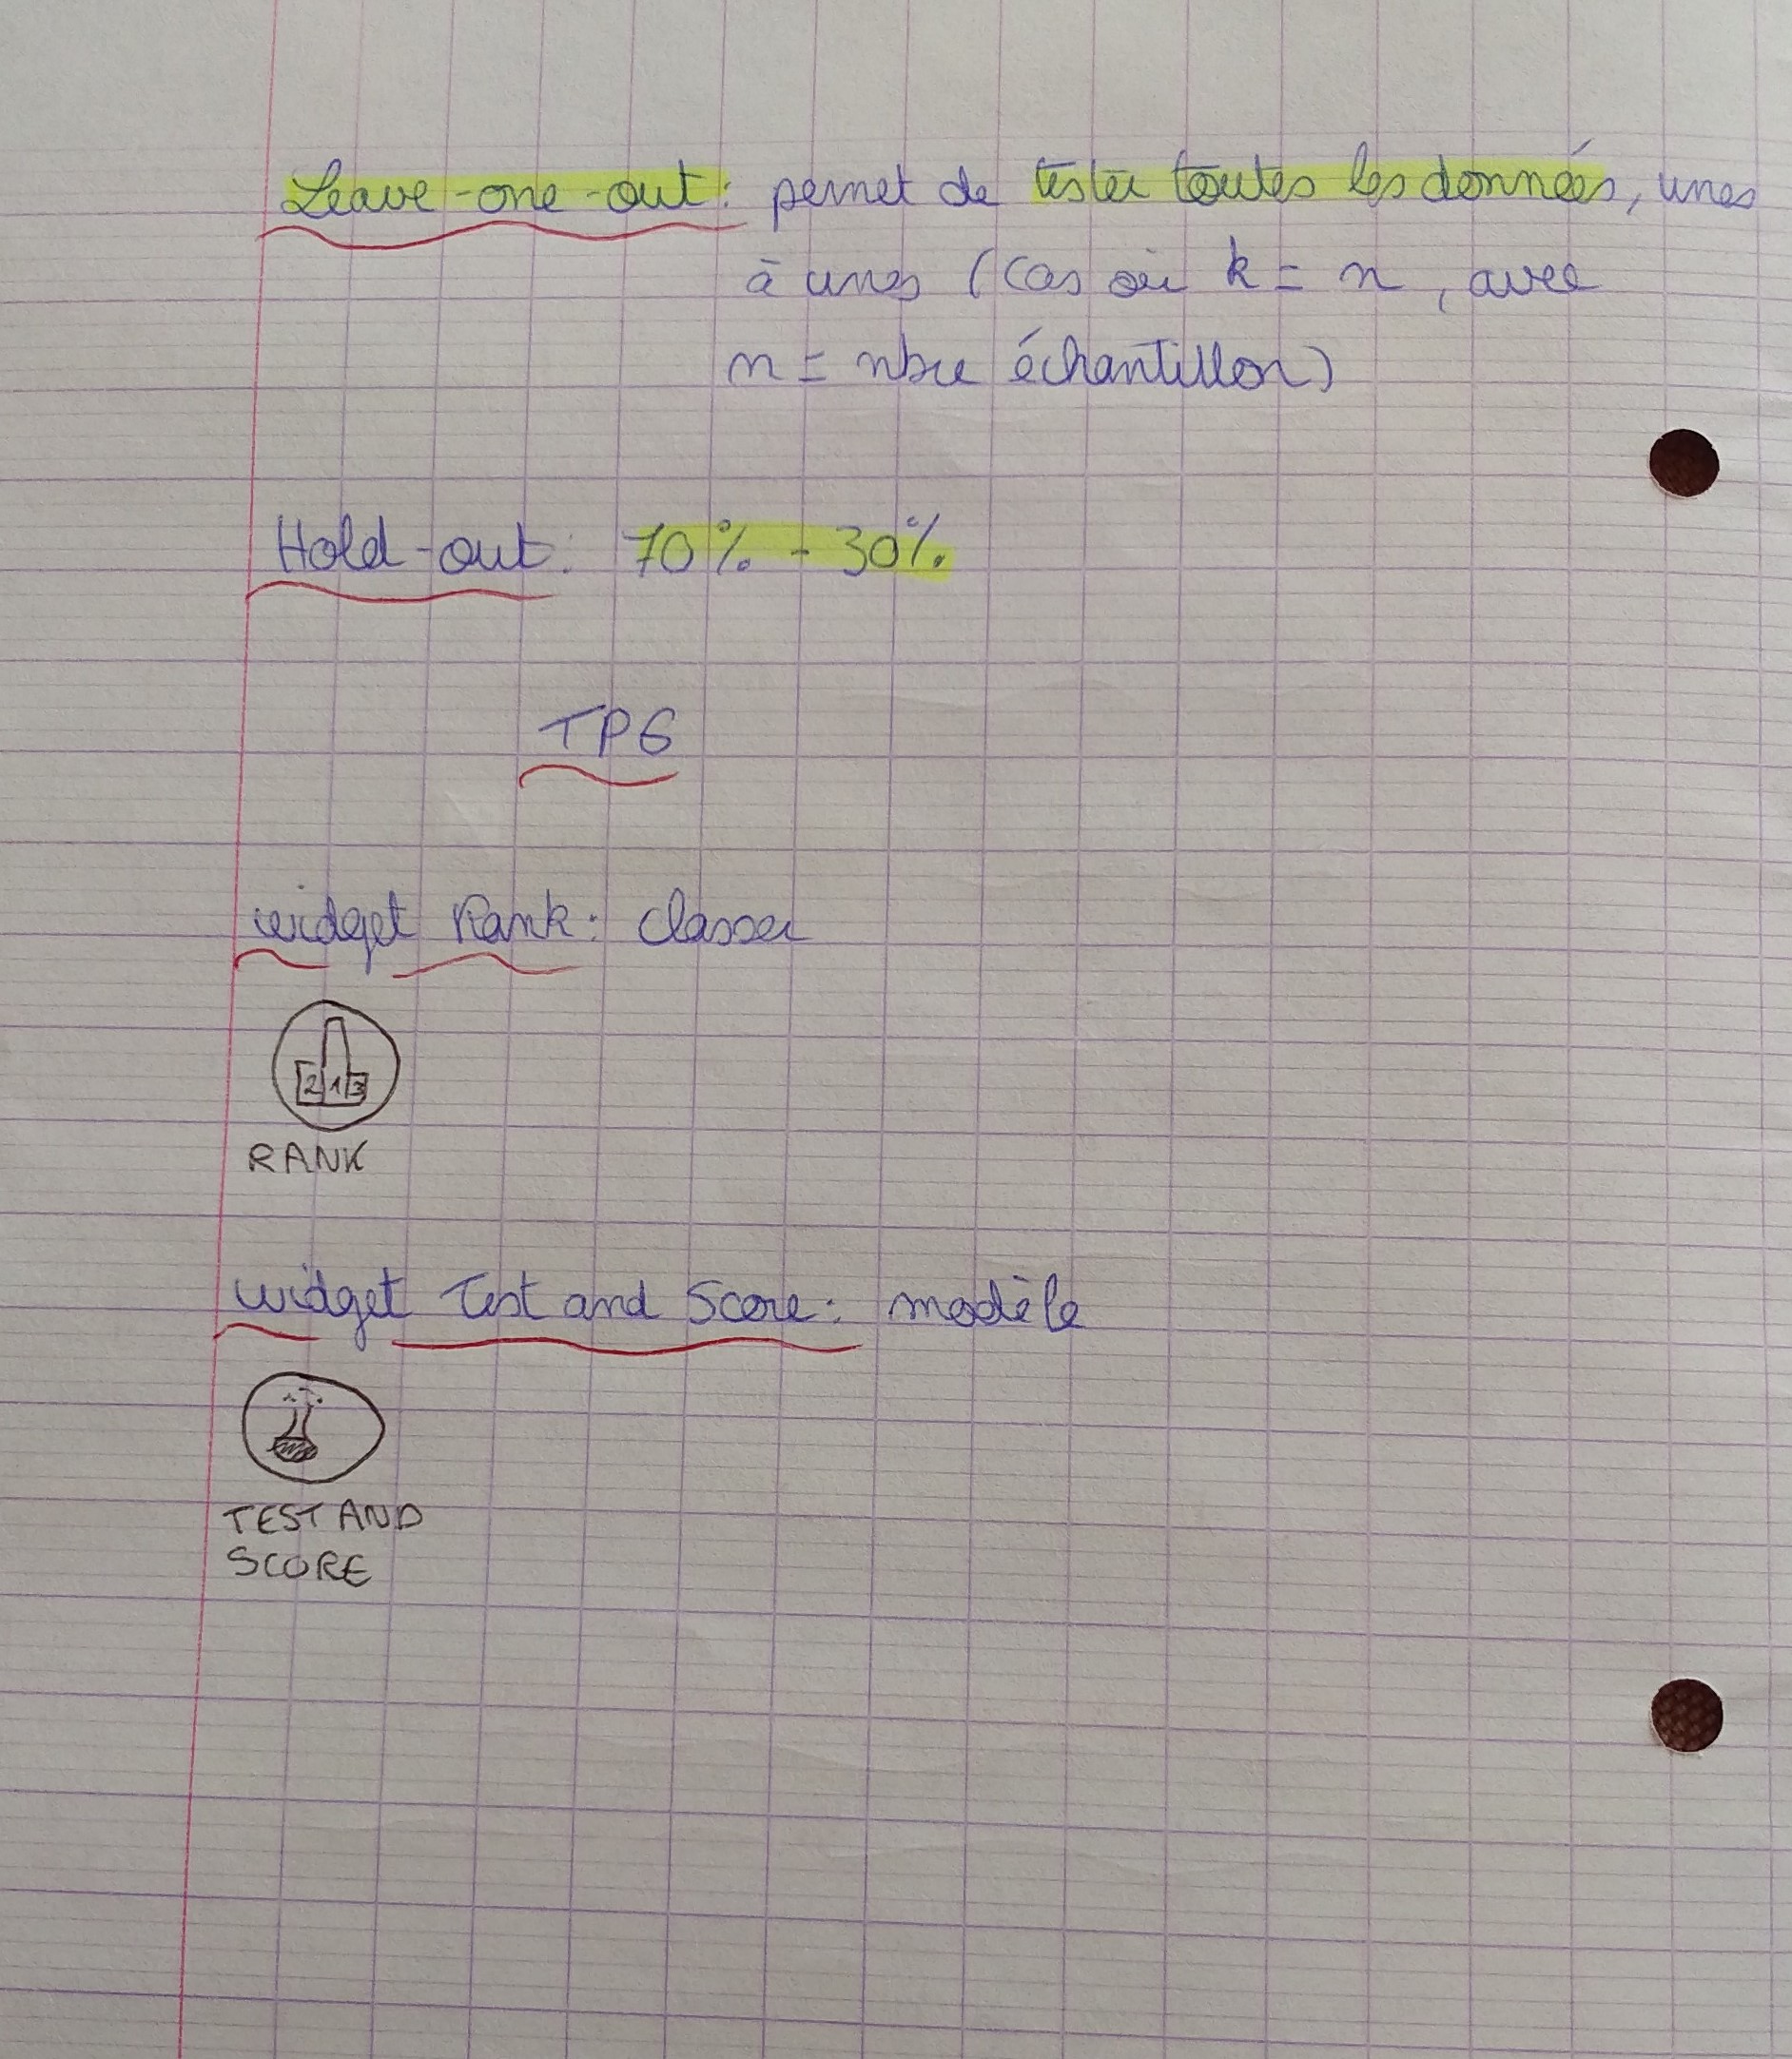 Leave-one-out: permet de tester toutes les données, unes
à unes (Cas où k = n, avec
n = nbre échantillon)
Hold-out: 70% - 30%
TP6
widget Rank: Classer
2 1 3
RANK
widget Test and Score: modèle
TEST AND
SCORE